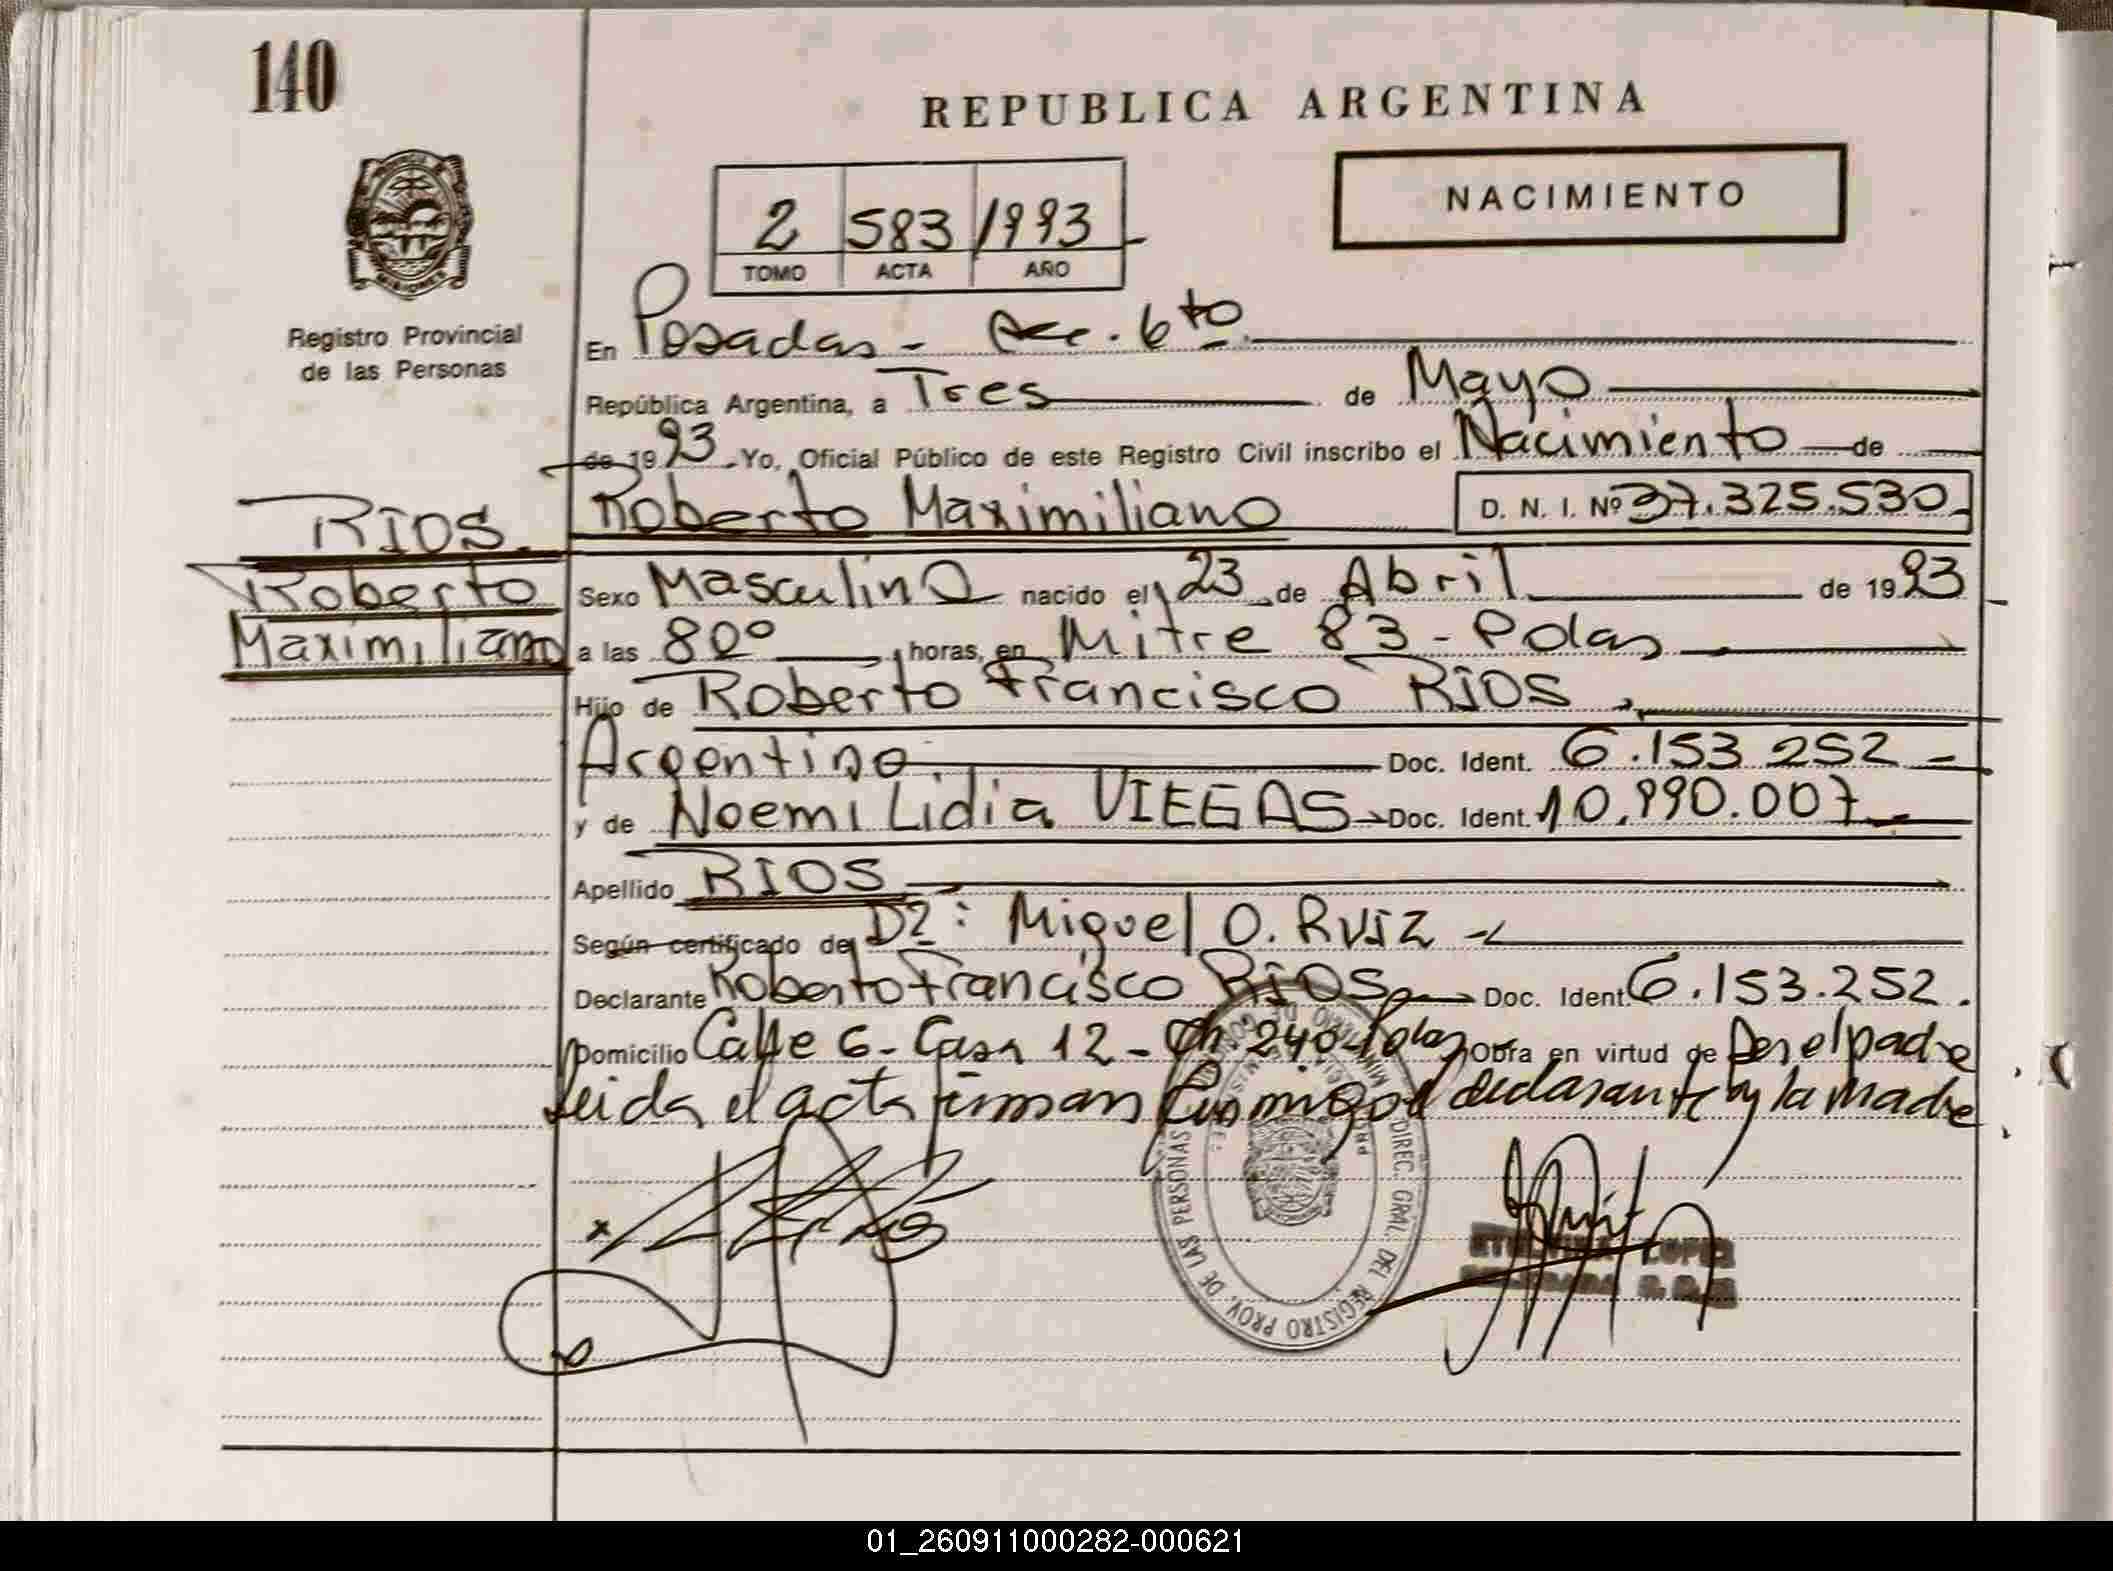 140
REPUBLICA ARGENTINA
NACIMIENTO
2 583 1993
TOMO ACTA AÑO
Registro Provincial
de las Personas
En Posadas - Acc. 6to
República Argentina, a Tres de Mayo
de 1993 Yo, Oficial Público de este Registro Civil inscribo el Nacimiento de
RIOS Roberto Maximiliano D. N. I. Nº 37.325.530
Roberto
Maximiliano
Sexo Masculino nacido el 23 de Abril de 1993
a las 8 00 horas, en Mitre 83 - Pdas
Hijo de Roberto Francisco RIOS
Argentino Doc. Ident. 6.153.252
y de Noemi Lidia VIEGAS Doc. Ident. 10.990.007
Apellido RIOS
Según certificado de Dr: Miguel O. Ruiz
Declarante Roberto Francisco RIOS Doc. Ident. 6.153.252.
Domicilio Calle 6 - Casa 12 - Ch. 240 - Pdas Obra en virtud de Ser el padre
Leida el acta firman conmigo el declarante y la madre
DIREC. GRAL. DEL REGISTRO PROV. DE LAS PERSONAS
LOPEZ
01_260911000282-000621